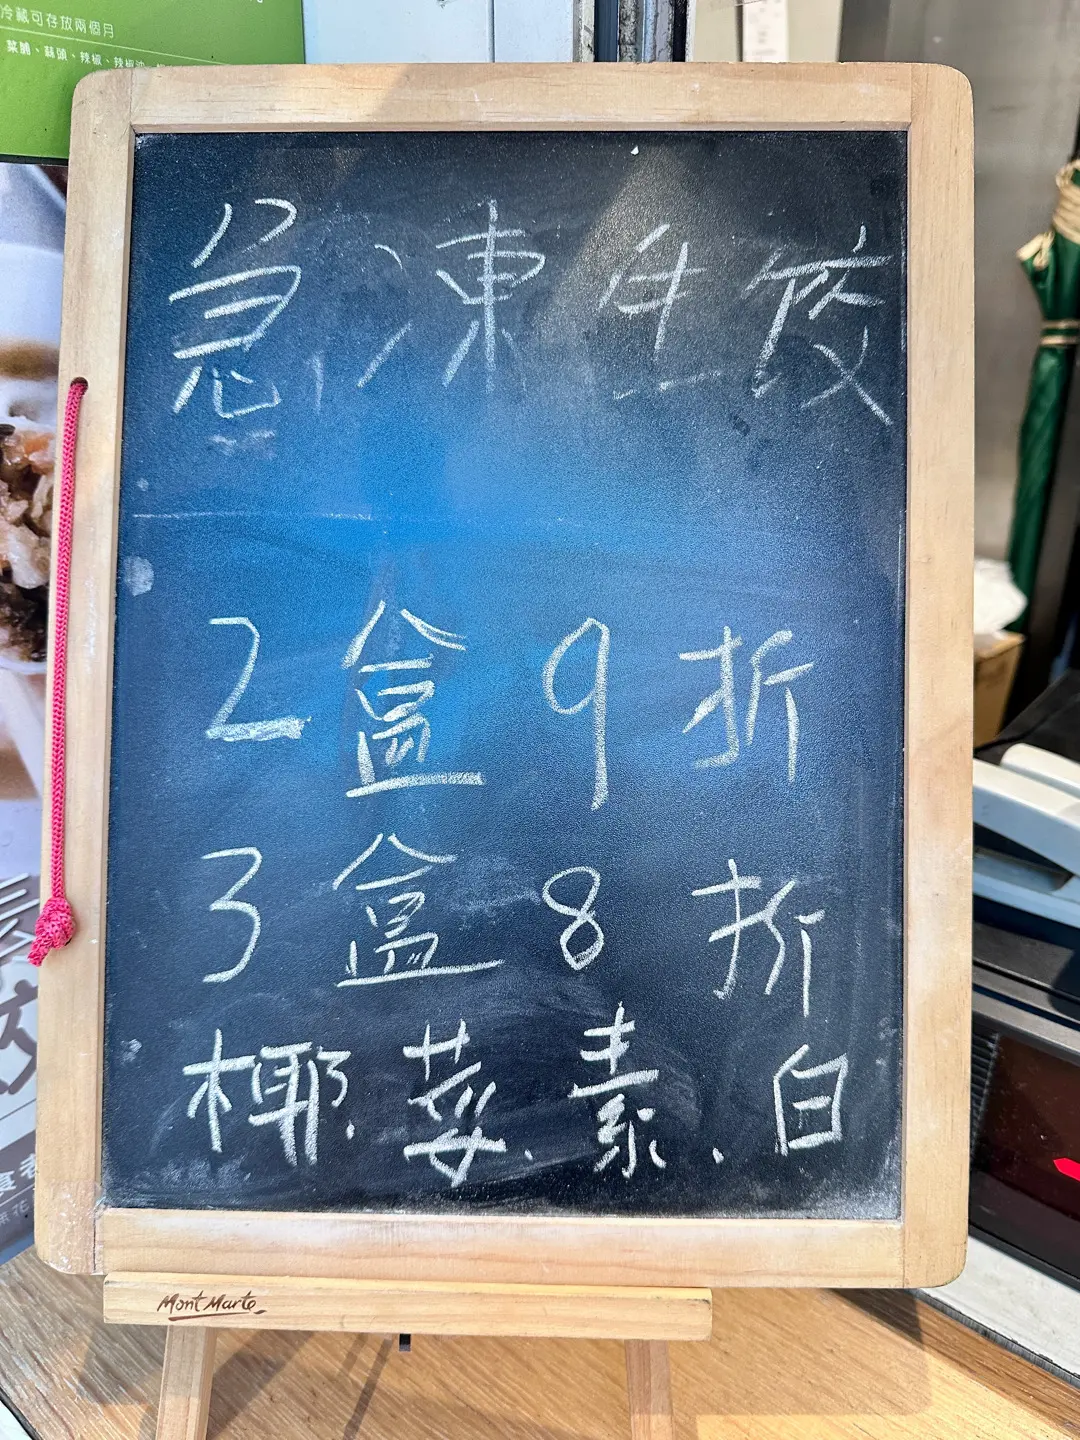 冷藏可存放兩個月
菜脯、蒜頭、辣椒、辣椒油、
急凍生餃
2盒9折
3盒8折
椰、荽、素、白
Mont Marte